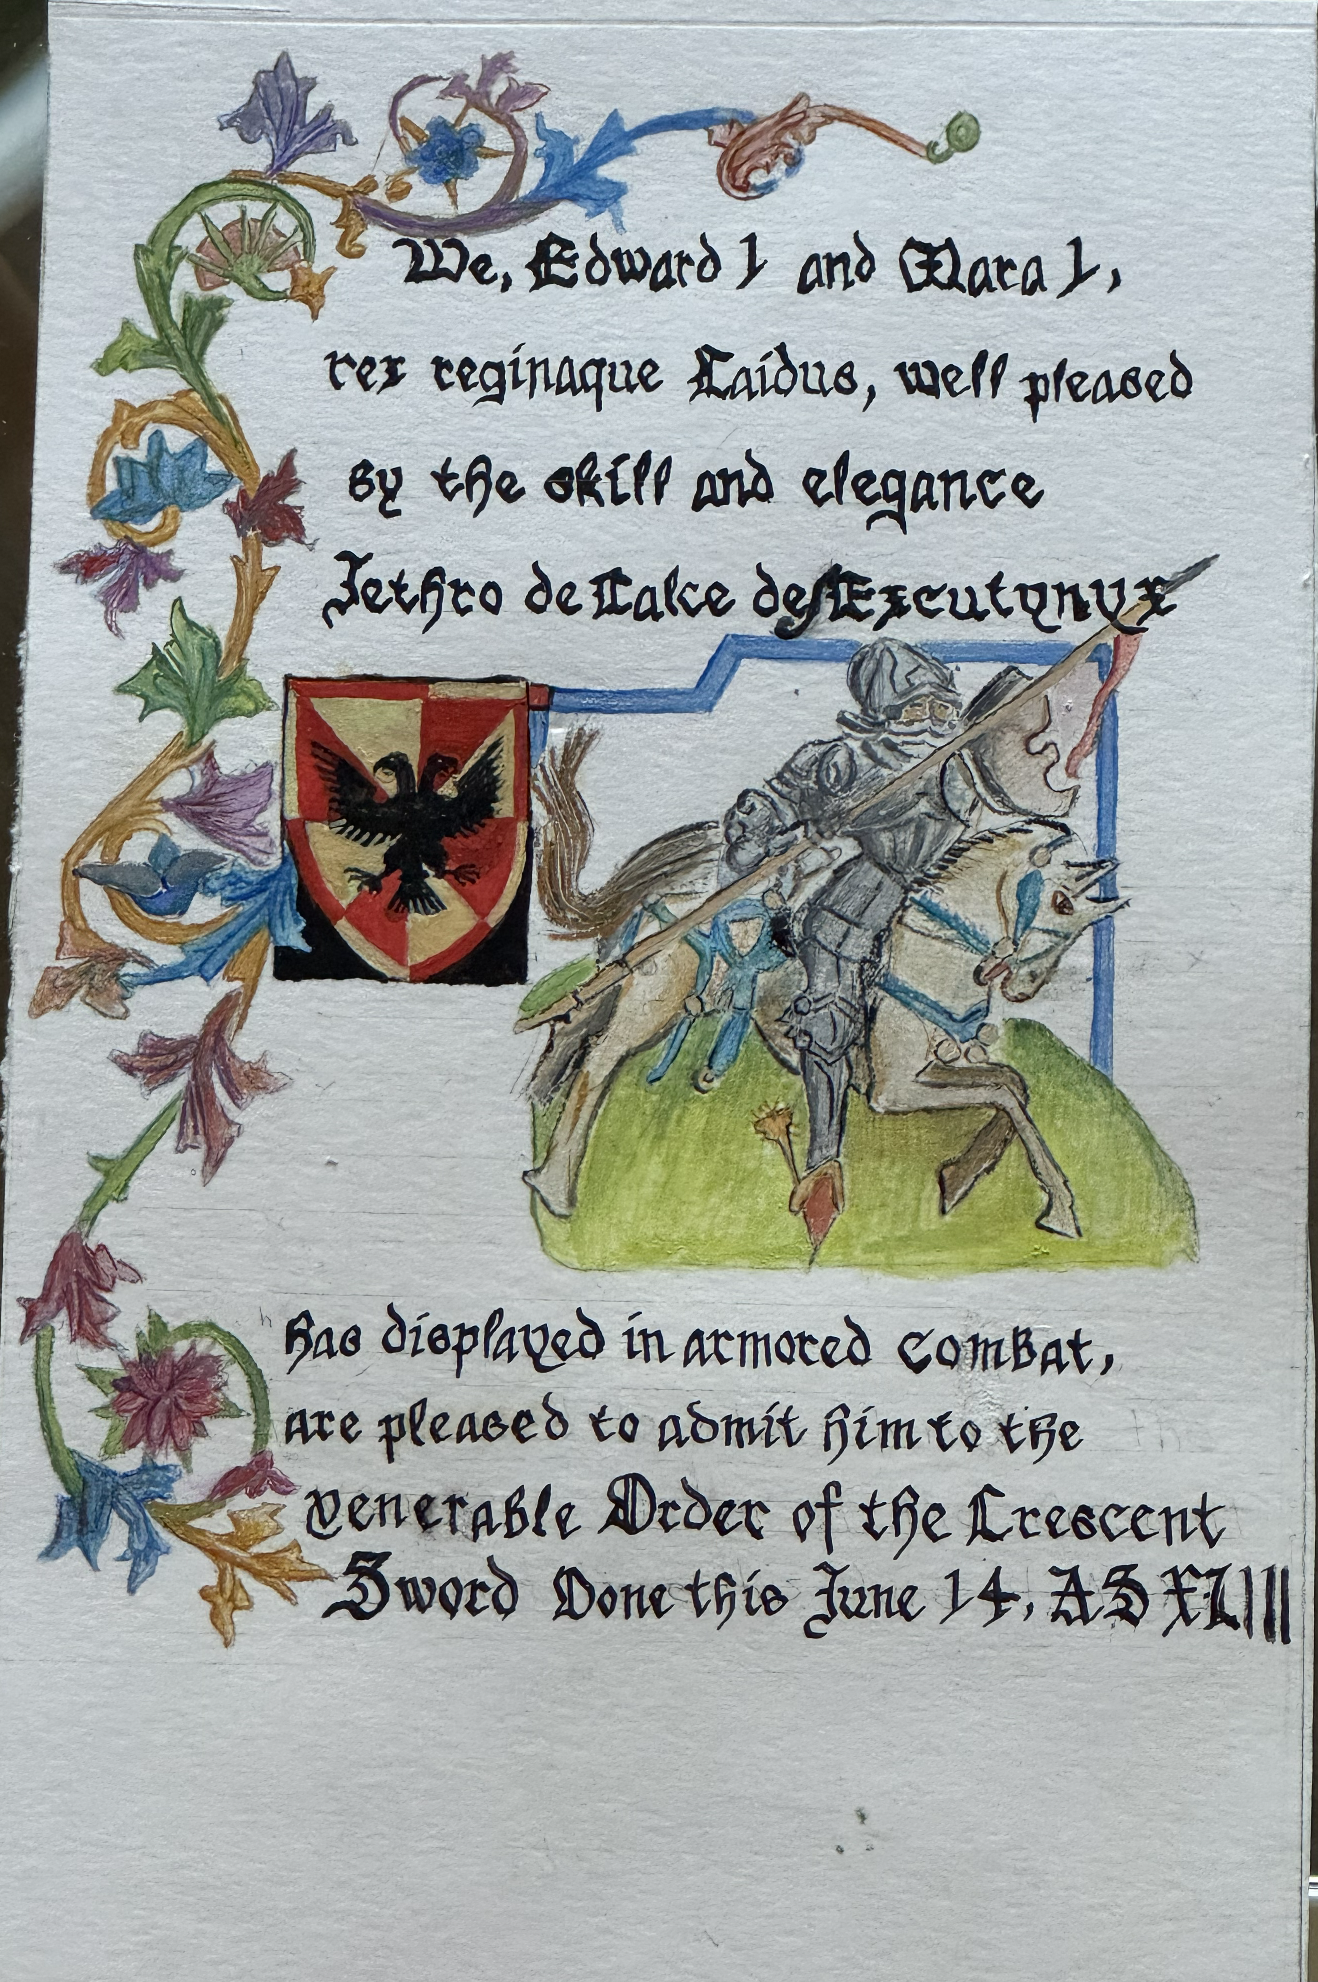 We, Edward I and Mara I,
rex reginaque Caidus, well pleased
by the skill and elegance
Jethro de Calce de Excutynyx
has displayed in armored combat,
are pleased to admit him to the
venerable Order of the Crescent
Sword Done this June 14, AS XLIII